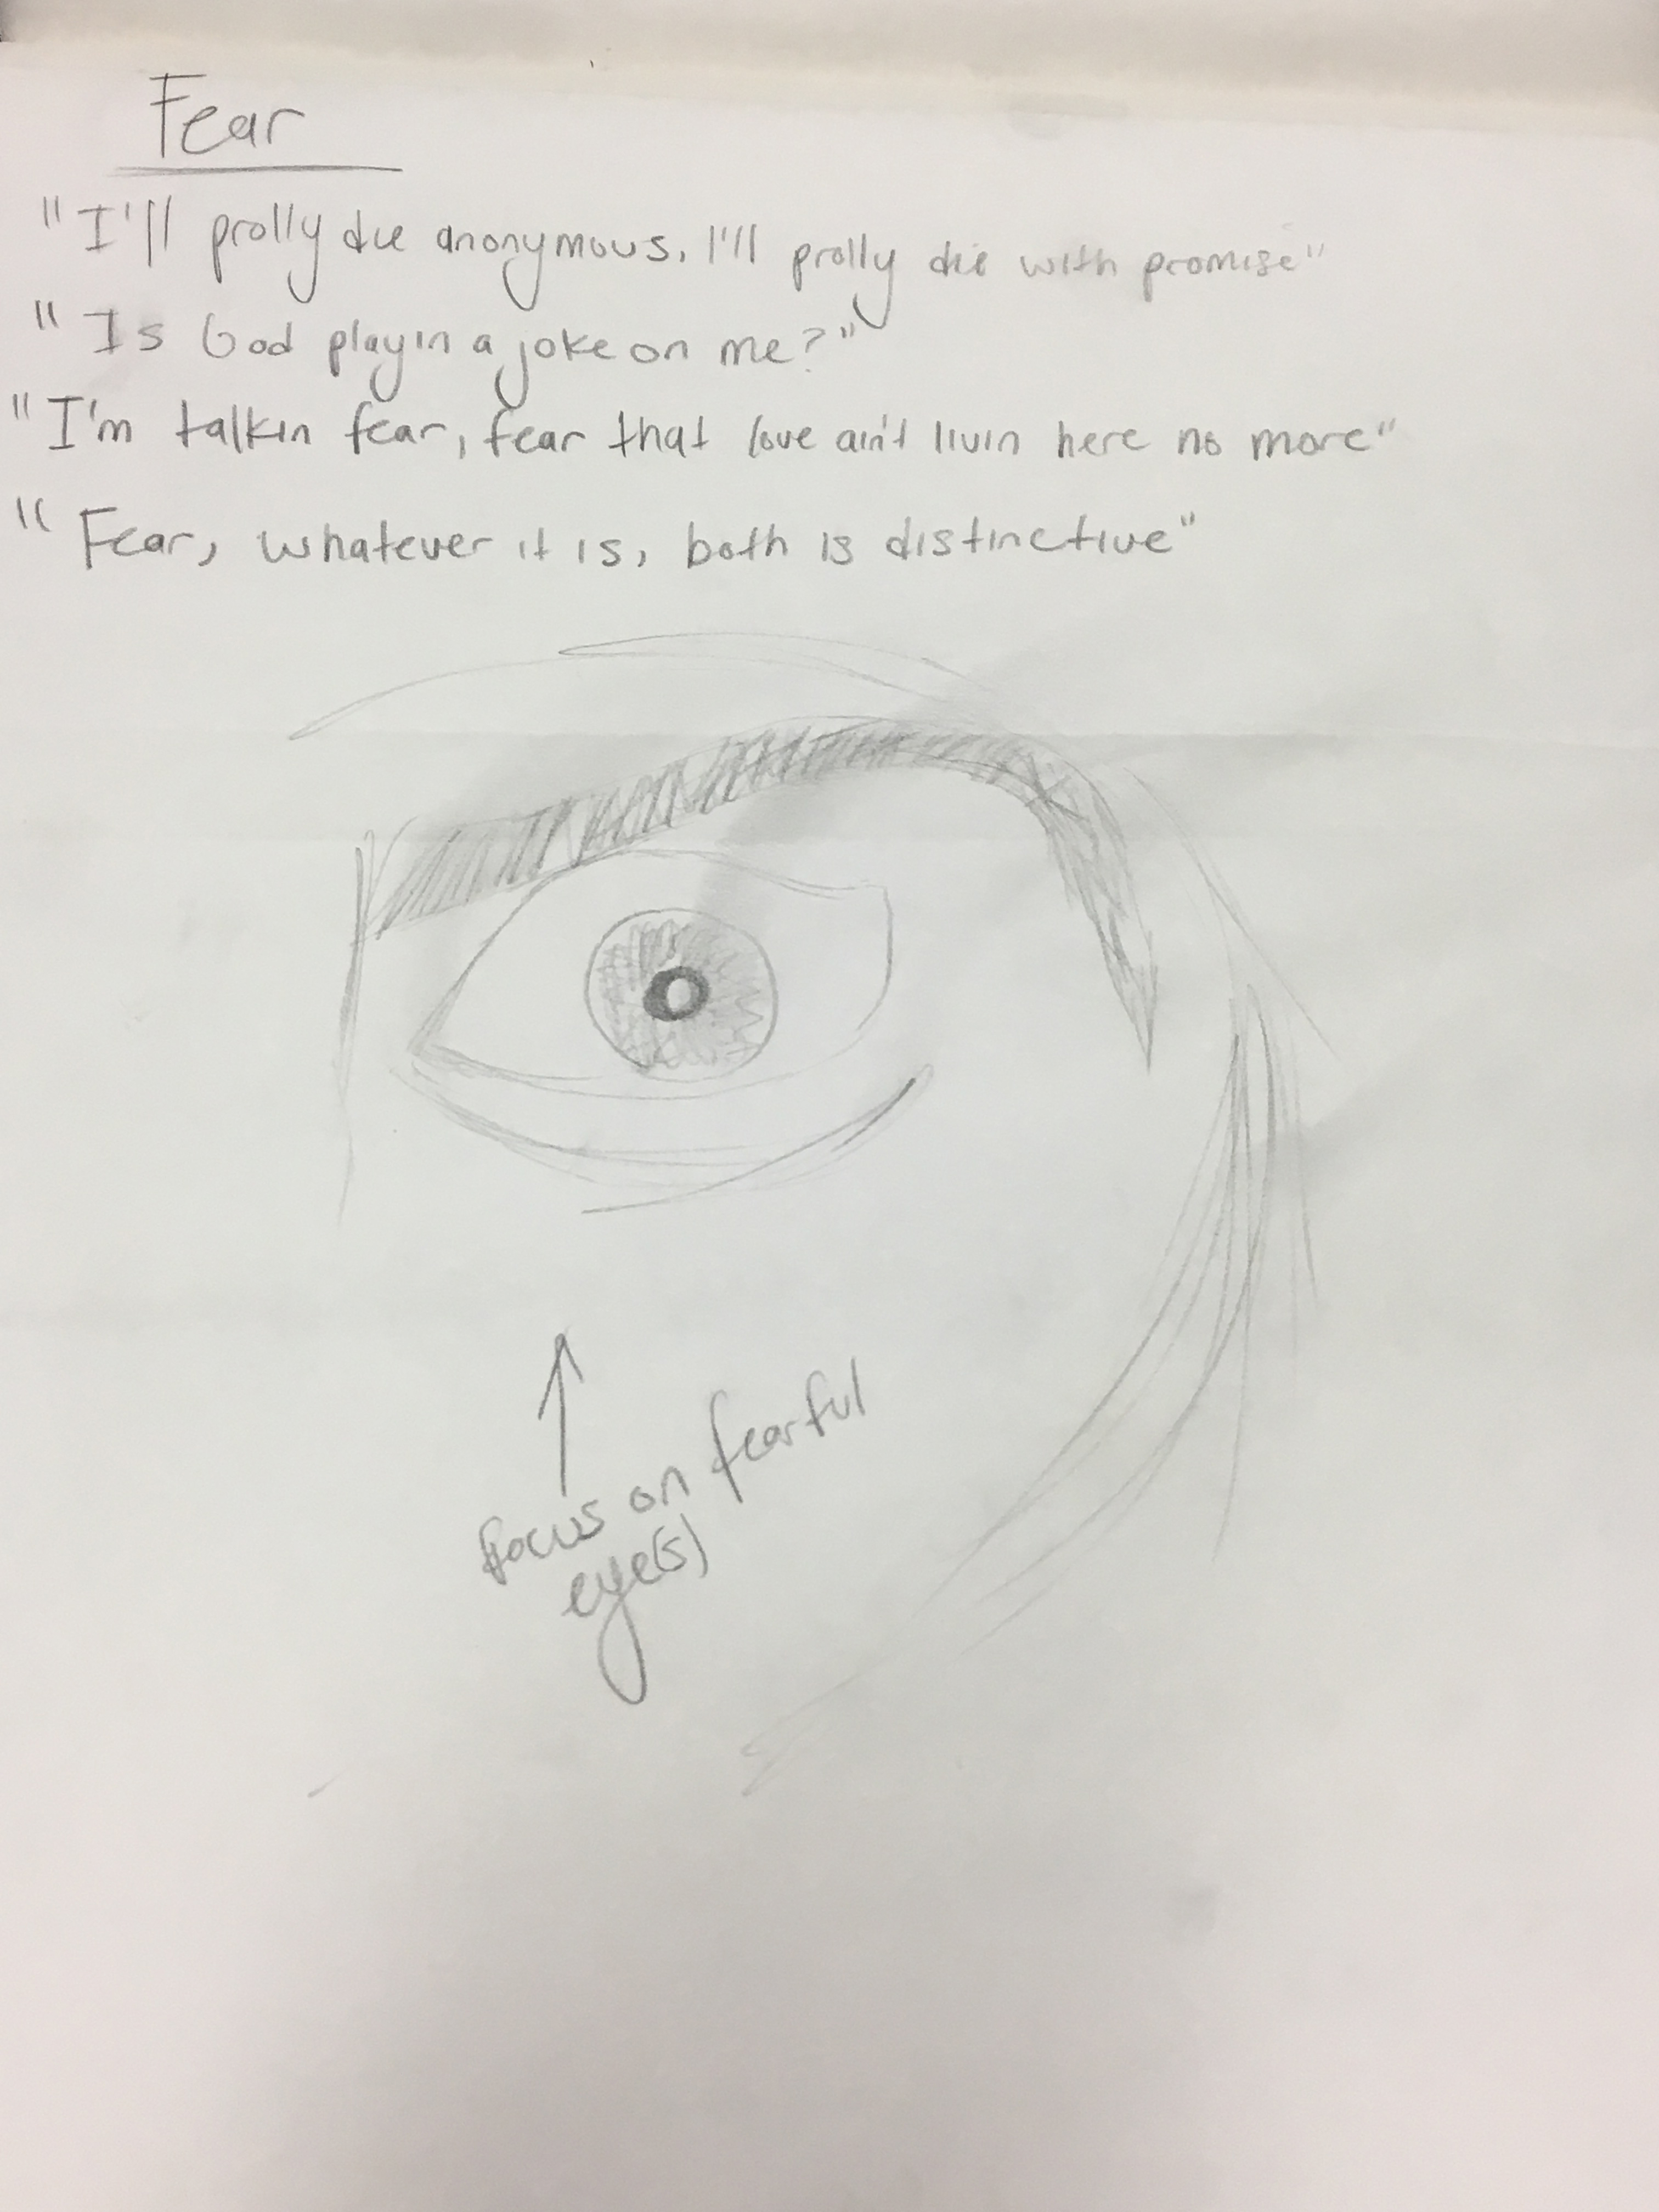 Fear
"I'll prolly die anonymous, I'll prolly die with promise"
"Is God playin a joke on me?"
"I'm talkin fear, fear that love ain't livin here no more"
"Fear, whatever it is, both is distinctive"
focus on fearful
eye(s)